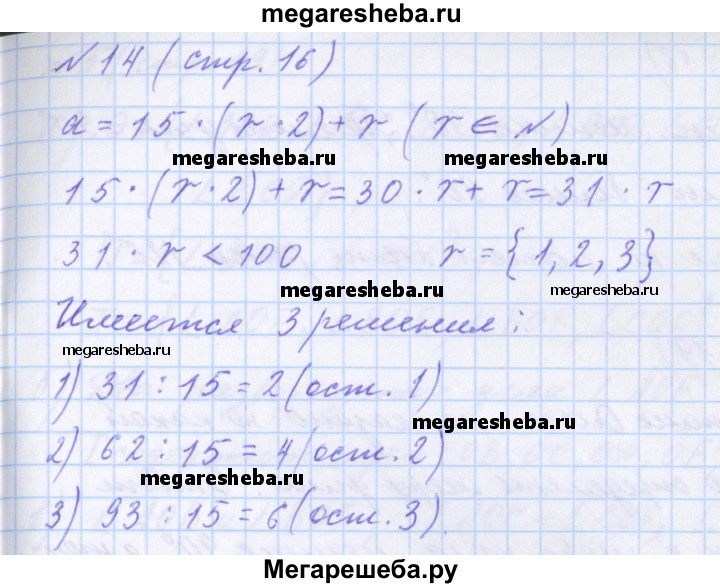 megaresheba.ru
№14 (стр. 16)
a = 15 · (r · 2) + r (r ∈ N)
megaresheba.ru megaresheba.ru
15 · (r · 2) + r = 30 · r + r = 31 · r
31 · r < 100 r = {1, 2, 3}
megaresheba.ru megaresheba.ru
Имеется 3 решения:
megaresheba.ru
1) 31 : 15 = 2 (ост. 1)
2) 62 : 15 = 4 (ост. 2)
megaresheba.ru
3) 93 : 15 = 6 (ост. 3)
Мегарешеба.ру